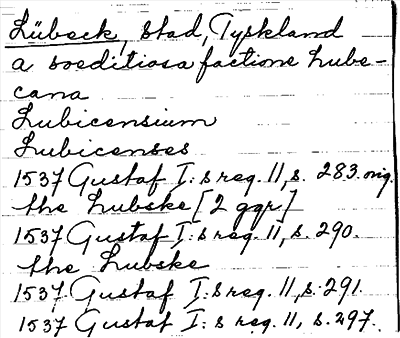 Lübeck, stad, Tyskland
a soeditiosa factione Lube-
cana
Lubicensium
Lubicenses
1537 Gustaf I:s reg. 11, s. 283. orig.
the Lubske [2 ggr]
1537 Gustaf I:s reg. 11, s. 290.
the Lubske
1537 Gustaf I:s reg. 11, s. 291.
1537 Gustaf I:s reg. 11, s. 297.